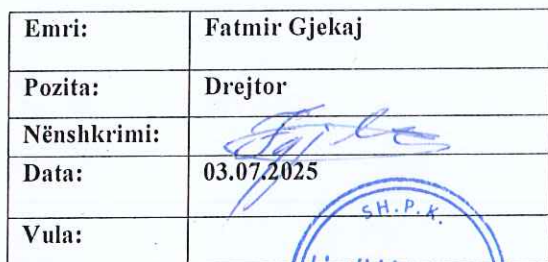 Emri: Fatmir Gjekaj
Pozita: Drejtor
Nënshkrimi:
Data: 03.07.2025
Vula:
SH.P.K.